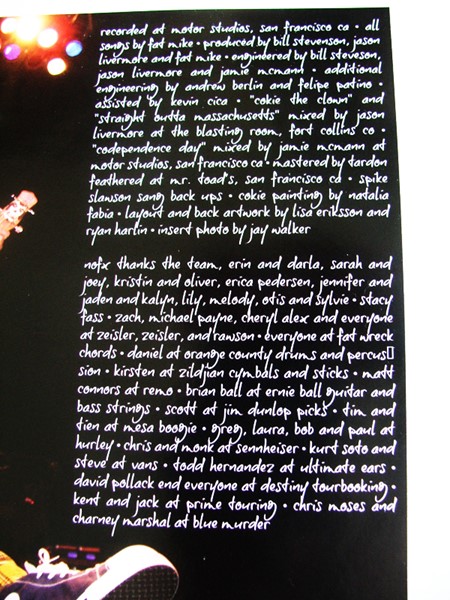 recorded at motor studios, san francisco ca • all
songs by fat mike • produced by bill stevenson, jason
livermore and fat mike • engineered by bill steveson,
jason livermore and jamie mcmann • additional
engineering by andrew berlin and felipe patino •
assisted by kevin cica • "cokie the clown" and
"straight outta massachusetts" mixed by jason
livermore at the blasting room, fort collins co •
"codependence day" mixed by jamie mcmann at
motor studios, san francisco ca • mastered by tardon
feathered at mr. toad's, san francisco ca • spike
slawson sang back ups • cokie painting by natalia
fabia • layout and back artwork by lisa eriksson and
ryan harlin • insert photo by jay walker
nofx thanks the team, erin and darla, sarah and
joey, kristin and oliver, erica pedersen, jennifer and
jaden and kalyn, lily, melody, otis and sylvie • stacy
fass • zach, michael payne, cheryl alex and everyone
at zeisler, zeisler, and rawson • everyone at fat wreck
chords • daniel at orange county drums and percus▯
sion • kirsten at zildjian cymbals and sticks • matt
connors at remo • brian ball at ernie ball guitar and
bass strings • scott at jim dunlop picks • tim and
tien at mesa boogie • greg, laura, bob and paul at
hurley • chris and monk at sennheiser • kurt soto and
steve at vans • todd hernandez at ultimate ears •
david pollack end everyone at destiny tourbooking •
kent and jack at prime touring • chris moses and
charney marshal at blue murder